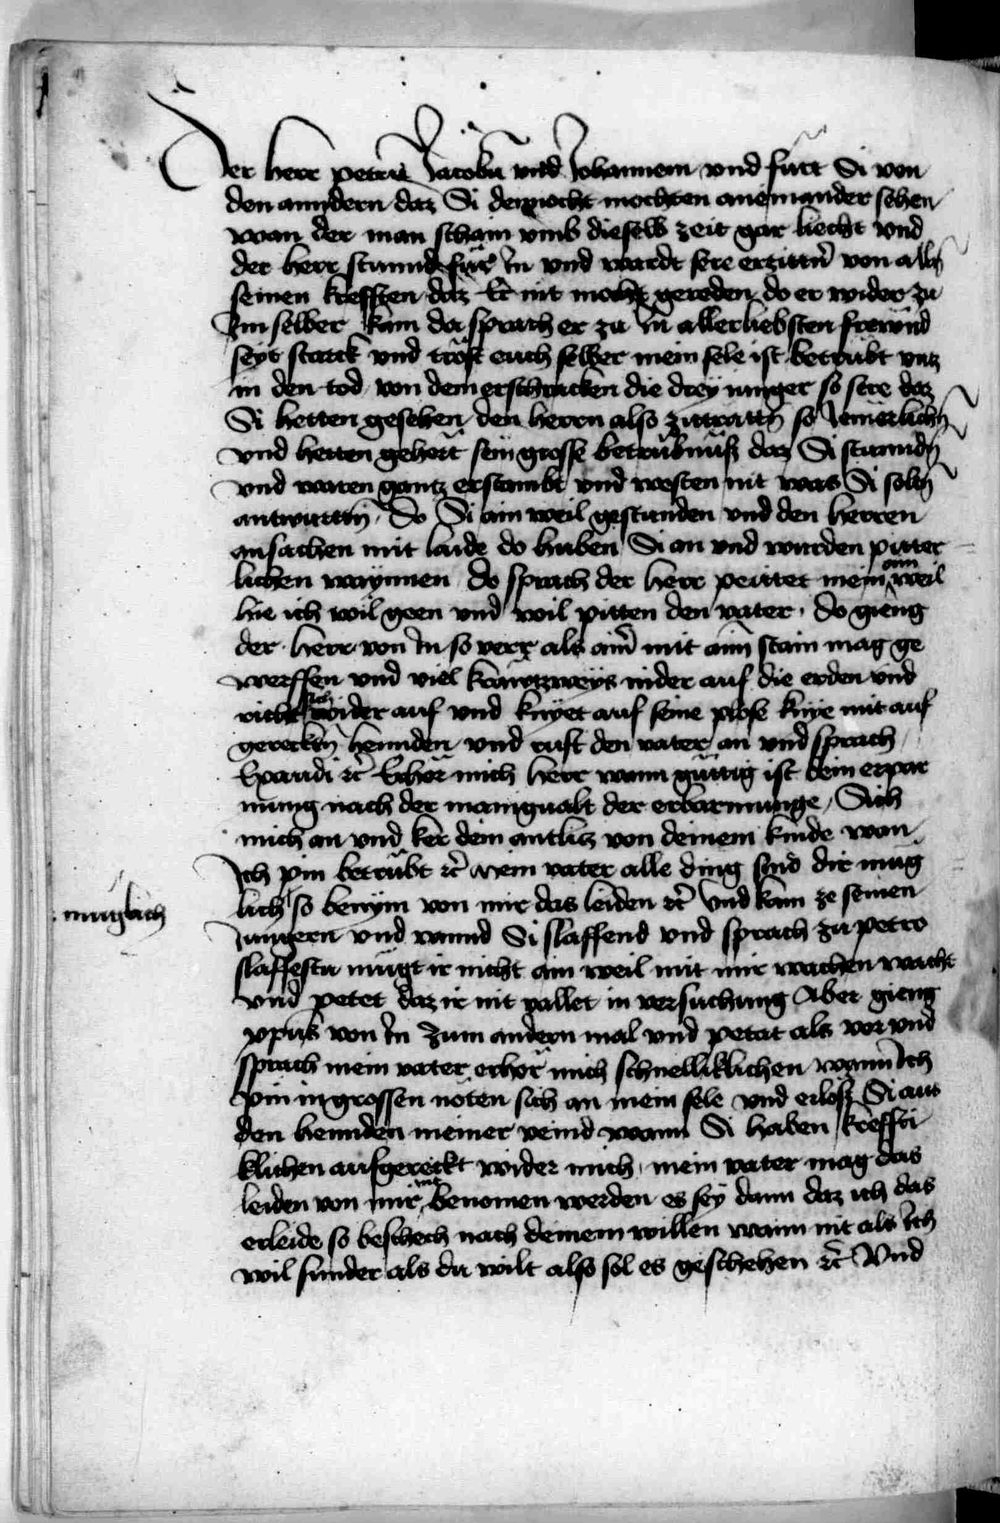 Der herr petrū Jacobū vnd Johannem vnd fürt Si von
den anndern daz Si dennocht mochten aneinander sehen
wan der man scham vmb dieselb zeit gar liecht vnd
der herr stuund für In vnd wardt sere erzittñ von allñ
seinen krefften daz Er nit mocht gereden do er wider zu
Im selber kam do sprach er zu In allerliebsten frewnd
seyt starck vnd tröst euch selber mein sele ist betrübt vntz
in den tod von dem erschracken die drey iunger so sere daz
Si hetten gesehen den herrn also zittrattñ so Iemerlichñ
vnd hetten gehört sein grosse betrübnüß daz Si stuundñ
vnd waren gantz erstumbt vnd westen nit was Si soltñ
antwurttñ. Do Si ain weil gestunden vnd den herren
ansachen mit laide do huben Si an vnd wurden pitter
lichen waynnen do sprach der herr peittet mein ain weil
hie ich wil geen vnd wil pitten den vater. do gieng
der herr von In so verr als aiñ mit aim stain mag ge
werffen vnd viel krawtzweys nider auf die erden vnd
richt sich wider auf vnd knyet auf seine plose knye mit auf
gerecktñ hennden vnd ruft den vater an vnd sprach
Exaudi ꝛc̄ Erhör mich herr wann güttig ist dein erpar
mung nach der manigualt der erbarmunge, Sich
mich an vnd ker dein antlitz von deinem kinde wan
Ich pin betrübt ꝛc̄ mein vater alle ding sind dir müg
lich so benym von mir das leiden ꝛc̄ Vnd kam ze seinen
muglich
Jungern vnd vannd Si slaffend vnd sprach zu petro
slaffestu mügt ir nicht ain weil mit mir wachen wacht
vnd petet daz ir nit vallet in versuchung Aber gieng
xpūs von In zum andern mal vnd petat als vor vnd
sprach mein vater erhör mich schnelliklichen wann Ich
pin in grossen nöten sich an mein sele vnd erlöß Si aus
den hennden meiner veind wann Si haben krefftti
klichen aufgereckt wider mich, mein vater mag das
leiden von mir nit benomen werden es sey dann daz ich das
erleide so beschech nach deinem willen wann nit als Ich
wil sunder als du wilt also sol es geschehen ꝛc̄ Vnd